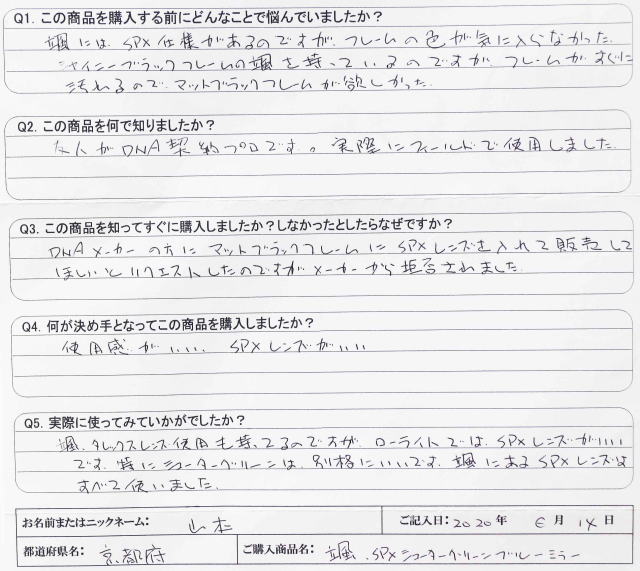 Q1. この商品を購入する前にどんなことで悩んでいましたか？
颯には、SPX仕様があるのですが、フレームの色が気に入らなかった。
シャイニーブラックフレームの颯を持っているのですが、フレームがすぐに
汚れるので、マットブラックフレームが欲しかった。
Q2. この商品を何で知りましたか？
友人がDNA契約プロです。実際にフィールドで使用しました。
Q3. この商品を知ってすぐに購入しましたか？しなかったとしたらなぜですか？
DNAメーカーの方にマットブラックフレームにSPXレンズを入れて販売して
ほしいとリクエストしたのですがメーカーから拒否されました。
Q4. 何が決め手となってこの商品を購入しましたか？
使用感がいい、SPXレンズがいい
Q5. 実際に使ってみていかがでしたか？
颯、タレックスレンズ使用も持ってるのですが、ローライトでは、SPXレンズがいい
です。特にシューターグリーンは、別格にいいです。颯にあるSPXレンズは
すべて使いました。
お名前またはニックネーム： 山本 ご記入日：2020年 6月 14日
都道府県名： 京都府 ご購入商品名： 颯、SPXシューターグリーンブルーミラー